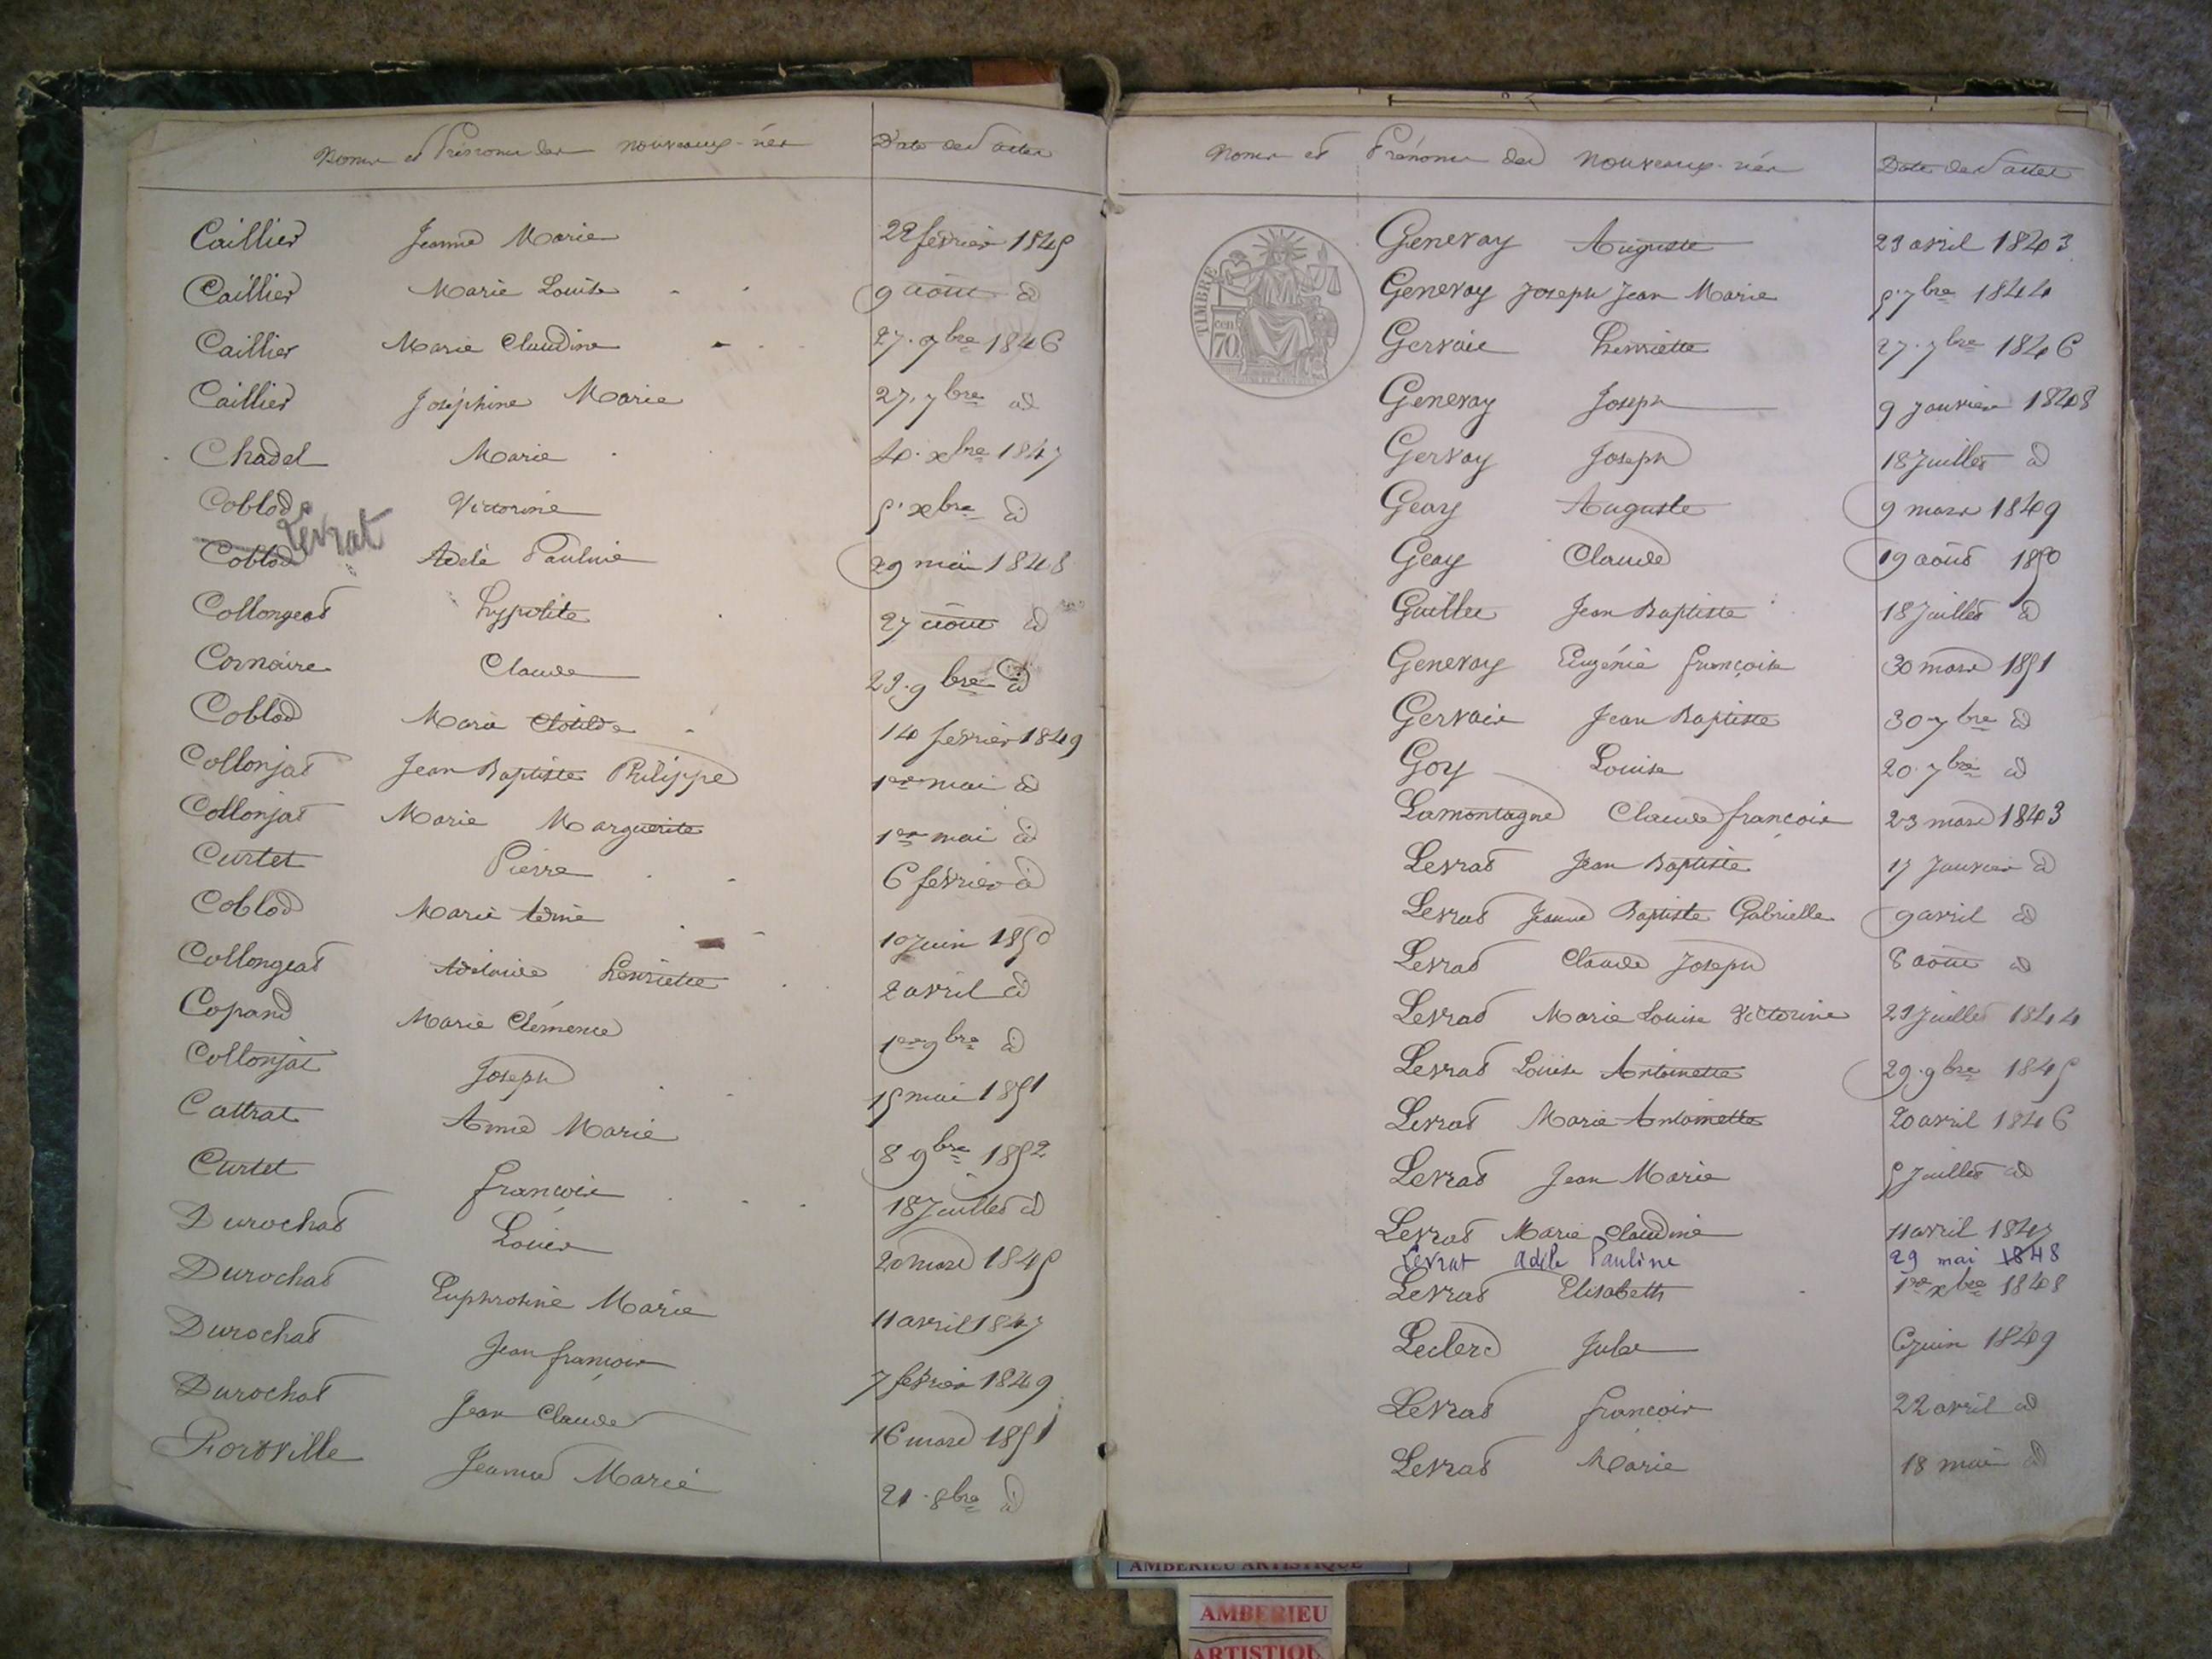 Noms et Prénoms des nouveaux-nés Date des actes
Caillier Jeanne Marie 22 février 1845
Caillier Marie Louise 9 août id
Caillier Marie Claudine 27. 7bre 1846
Caillier Joséphine Marie 27. 7bre id
Chadel Marie 4. xbre 1847
Coblod Victorine 5. xbre id
Levrat
Coblod Adèle Pauline 29 mai 1848
Collongeat hypolite 27 août id
Cornaire Claude 23. 9bre id
Coblod Marie Clotilde 14 février 1849
Collonjat Jean Baptiste Philippe 1er mai id
Collonjat Marie Marguerite 1er mai id
Curtet Pierre 6 février id
Coblod Marie 10 Juin 1850
Collongeat Adélaïde henriette 2 avril id
Copand Marie Clémence 1er 9bre id
Collonjat Joseph 15 mai 1851
Cattrat Anne Marie 8 9bre 1852
Curtet françois 18 Juillet id
Durochat Louis 20 mars 1845
Durochat Euphrosine Marie 11 avril 1847
Durochat Jean françois 7 février 1849
Durochat Jean Claude 16 mars 1851
Fortville Jeanne Marie 21. 8bre id
Noms et Prénoms des nouveaux-nés Date des actes
TIMBRE
70 cen
Genevay Auguste 23 avril 1843
Genevay Joseph Jean Marie 5. 7bre 1844
Gervais henriette 27. 7bre 1846
Genevay Joseph 9 Janvier 1848
Gervay Joseph 18 Juillet id
Geay Auguste 9 mars 1849
Geay Claude 19 août 1850
Guillet Jean Baptiste 18 Juillet id
Genevay Eugénie françoise 30 mars 1851
Gervais Jean Baptiste 30 7bre id
Goy Louise 20. 7bre id
Lamontagne Claude françois 23 mars 1843
Levrat Jean Baptiste 17 Janvier id
Levrat Jeanne Baptiste Gabrielle 9 avril id
Levrat Claude Joseph 8 août id
Levrat Marie Louise Victorine 23 Juillet 1844
Levrat Louise Antoinette 29. 9bre 1845
Levrat Marie Antoinette 20 avril 1846
Levrat Jean Marie 5 Juillet id
Levrat Marie Claudine 11 avril 1847
Levrat Adèle Pauline 29 mai 1848
Levrat Elisabeth 1er xbre 1848
Leclerc Jules 6 Juin 1849
Levrat françois 22 avril id
Levrat Marie 18 mai id
AMBERIEU ARTISTIQUE
AMBERIEU
ARTISTIQU